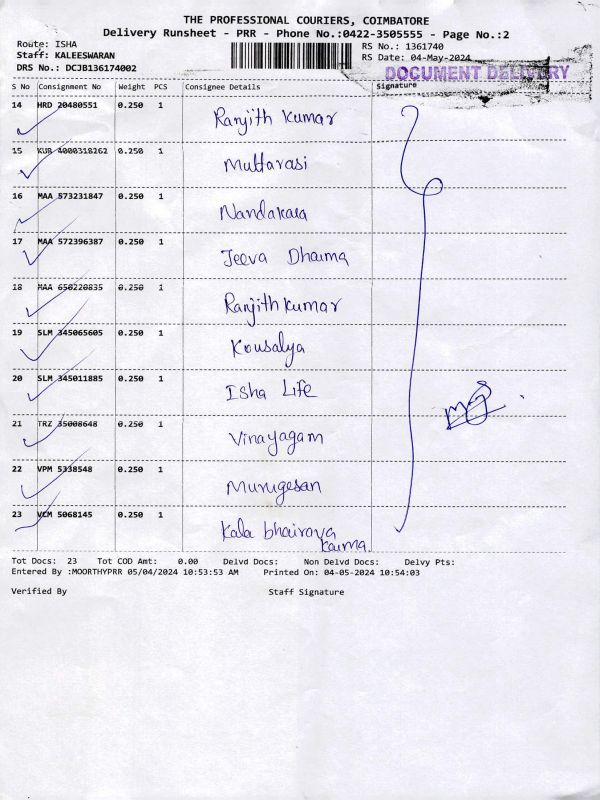 THE PROFESSIONAL COURIERS, COIMBATORE
Delivery Runsheet - PRR - Phone No.:0422-3505555 - Page No.:2
Route: ISHA
Staff: KALEESWARAN
DRS No.: DCJB136174002
RS No.: 1361740
RS Date: 04-May-2024
DOCUMENT DELIVERY
S No Consignment No Weight PCS Consignee Details Signature
14 HRD 20480551 0.250 1 Ranjith Kumar
15 KUR 4000318262 0.250 1 Muttarasi
16 MAA 573231847 0.250 1 Nandakala
17 MAA 572396387 0.250 1 Jeeva Dharma
18 MAA 650220835 0.250 1 Ranjith kumar
19 SLM 345065605 0.250 1 Kousalya
20 SLM 345011885 0.250 1 Isha Life
21 TRZ 35008648 0.250 1 Vinayagam
22 VPM 5338548 0.250 1 Murugesan
23 VCM 5068145 0.250 1 Kala bhairava
karma.
Tot Docs: 23 Tot COD Amt: 0.00 Delvd Docs: Non Delvd Docs: Delvy Pts:
Entered By :MOORTHYPRR 05/04/2024 10:53:53 AM Printed On: 04-05-2024 10:54:03
Verified By Staff Signature